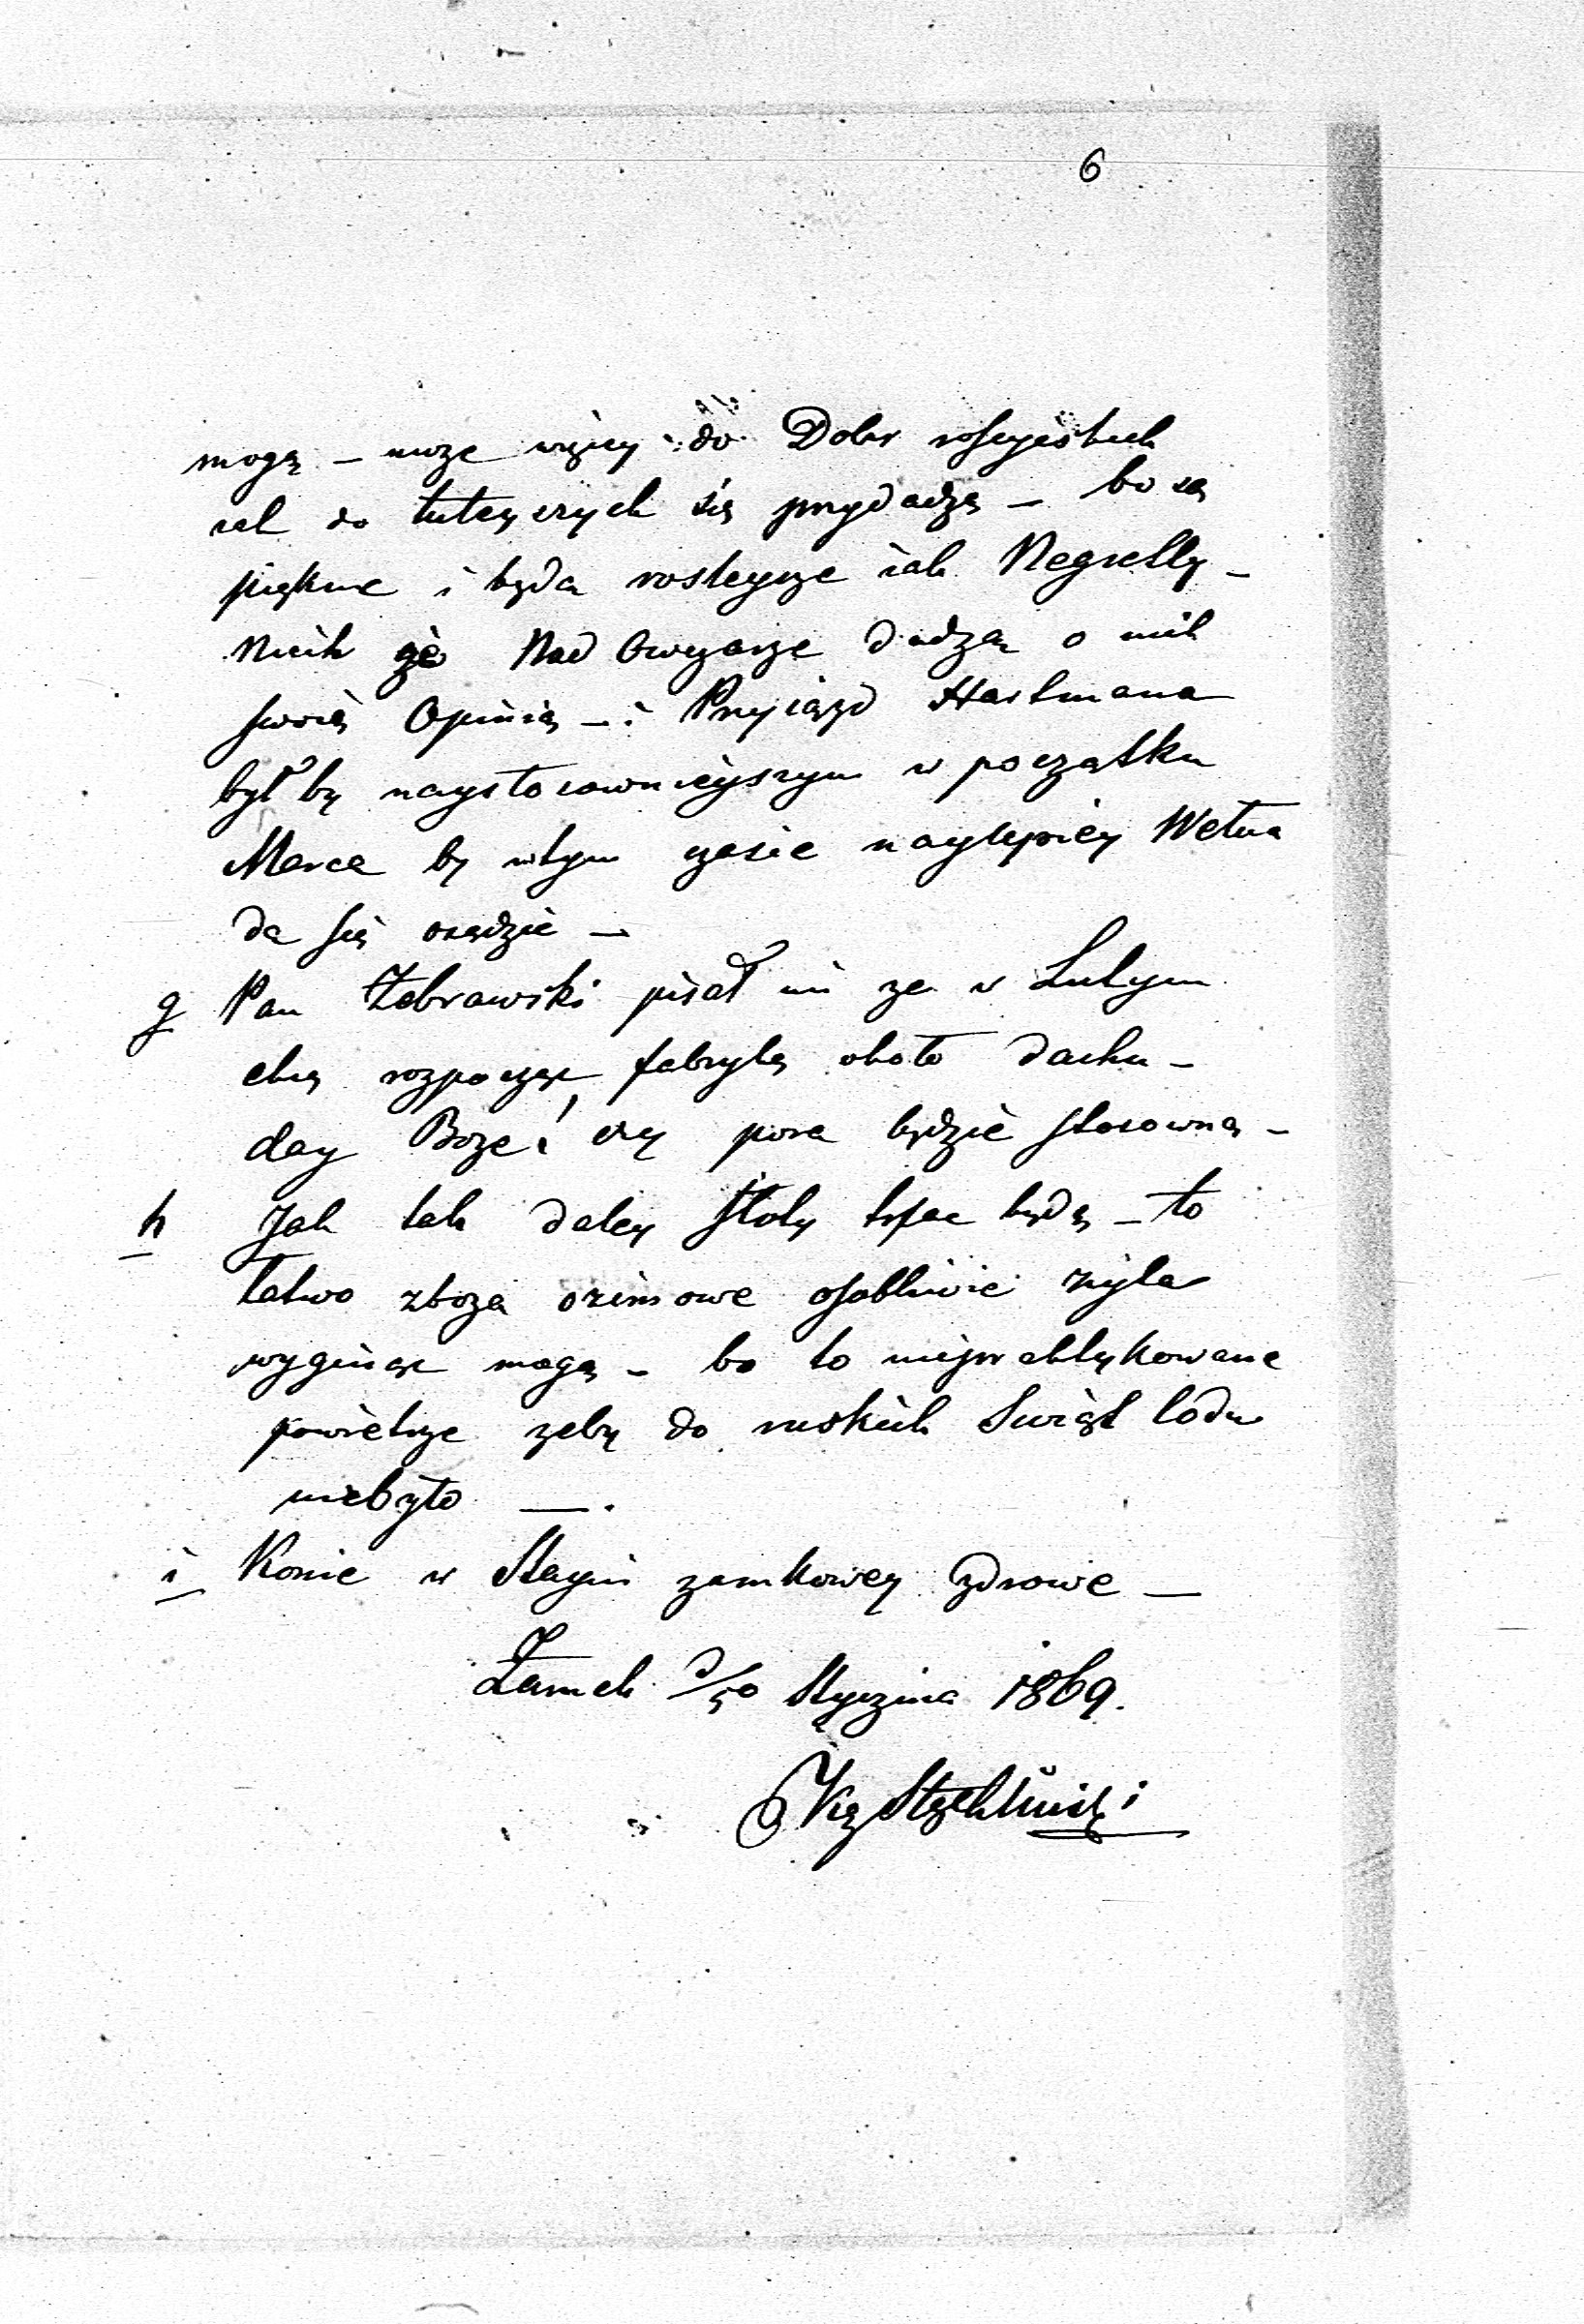 6
mogą – może więcej do Dobr rossyjskich
jak do tutejszych się przydadzą – bo są
piękne i będą rosleysze jak Negretty –
Niech że Nad Owczarze dadzą o nich
swoią Opinią – i Przyjazd Hartmana
był by naystosownieyszym w początku
Marca by w tym czasie naylepiey Wełna
da się osądzić –
g Pan Żebrawski pisał mi ze w Lutym
chcą rozpocząć fabrykę około dachu –
day Boze! czy pora będzie stosowną –
h Jak tak daley słoty trwać będą – to
łatwo zboża ozimowe osobliwie żyta
wyginąć mogą – bo to niepraktykowane
powietrze zeby do ruskich Swiąt lodu
niebyło –.
i Konie w Stayni zamkowey zdrowe –
Zamek Stycznia 1869.